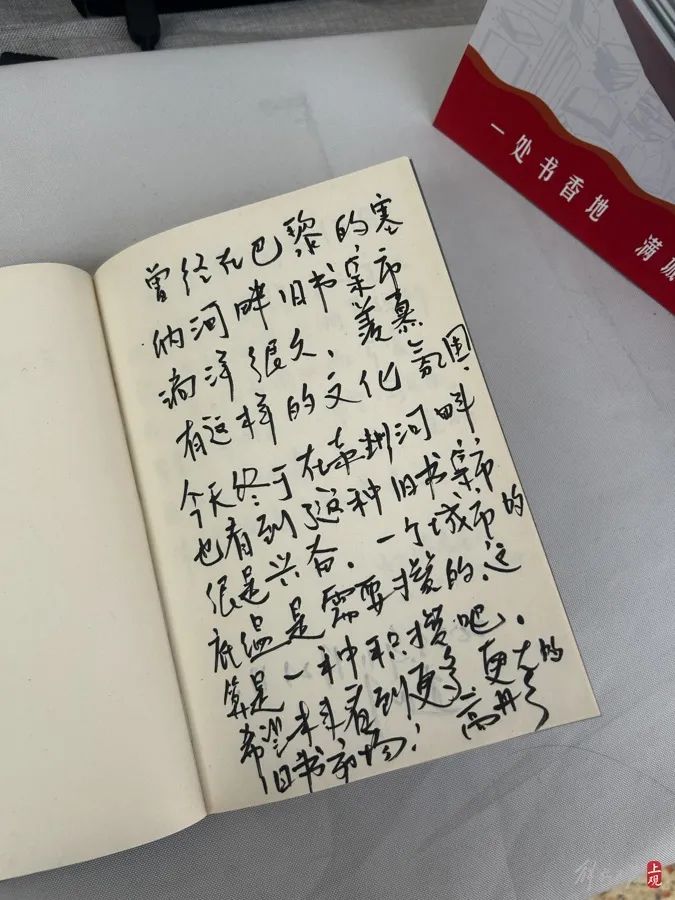 曾经在巴黎的塞
纳河畔旧书集市
淌洋很久，羡慕
有这样的文化氛围，
今天终于在苏州河畔
也看到了这种旧书集市
很是兴奋。一个城市的
底蕴是需要攒的，这
算是一种积攒吧。
希望未来看到更多更大的
旧书市场！
一处书香地 满
上观